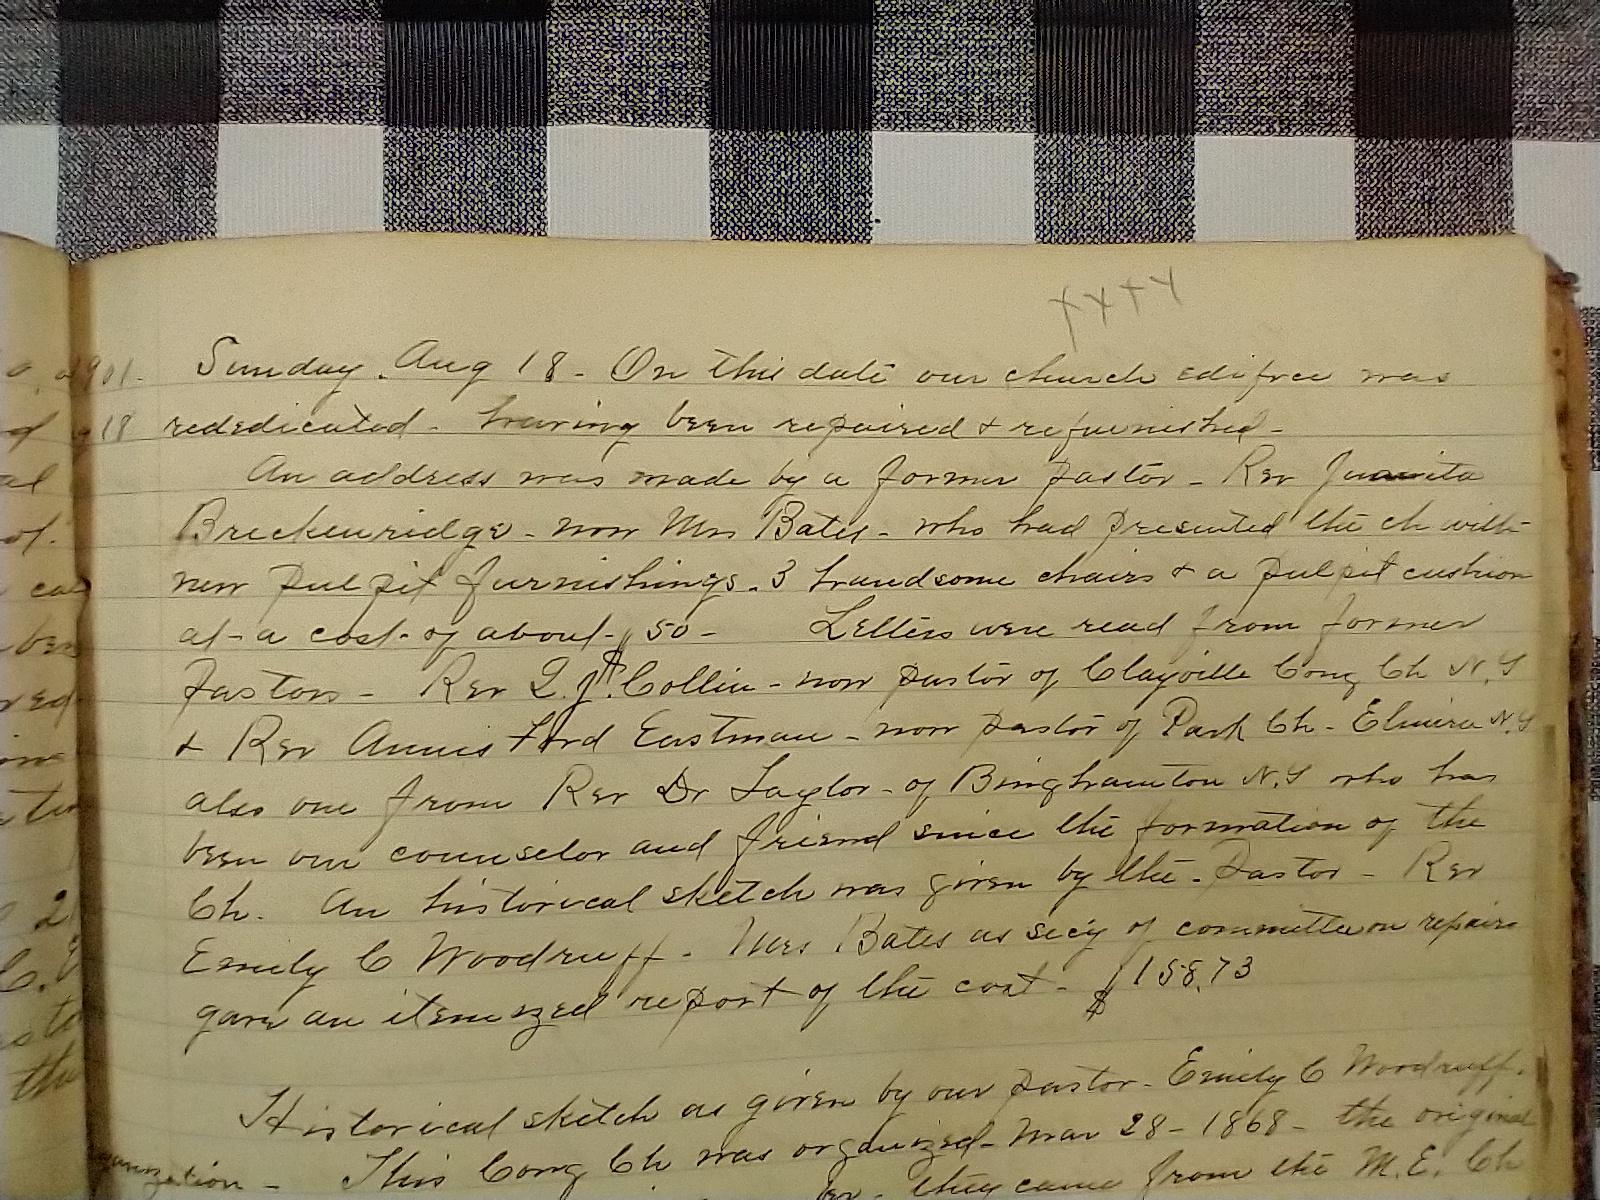 x x x x
1901. Sunday. Aug 18 - On this date our church edifice was
18 rededicated - having been repaired & refurnished -
An address was made by a former pastor - Rev Juanita
Breckenridge - now Mrs Bates - who had presented the ch with
new pulpit furnishings. 3 handsome chairs & a pulpit cushion
at a cost of about $50 - Letters were read from former
Pastors - Rev Collin - now pastor of Clayville Cong Ch N.Y
& Rev Annis Ford Eastman - now pastor of Park Ch - Elmira N.Y
also one from Rev Dr Taylor - of Binghamton N.Y who has
been our counselor and friend since the formation of the
Ch. An historical sketch was given by the - Pastor - Rev
Emily C Woodruff - Mrs Bates as secy of committee on repairs
gave an itemized report of the cost - $158,73
Historical sketch as given by our pastor - Emily C Woodruff.
organization - This Cong Ch was organized - Mar 28 - 1868 - the original
they came from the M.E. Ch